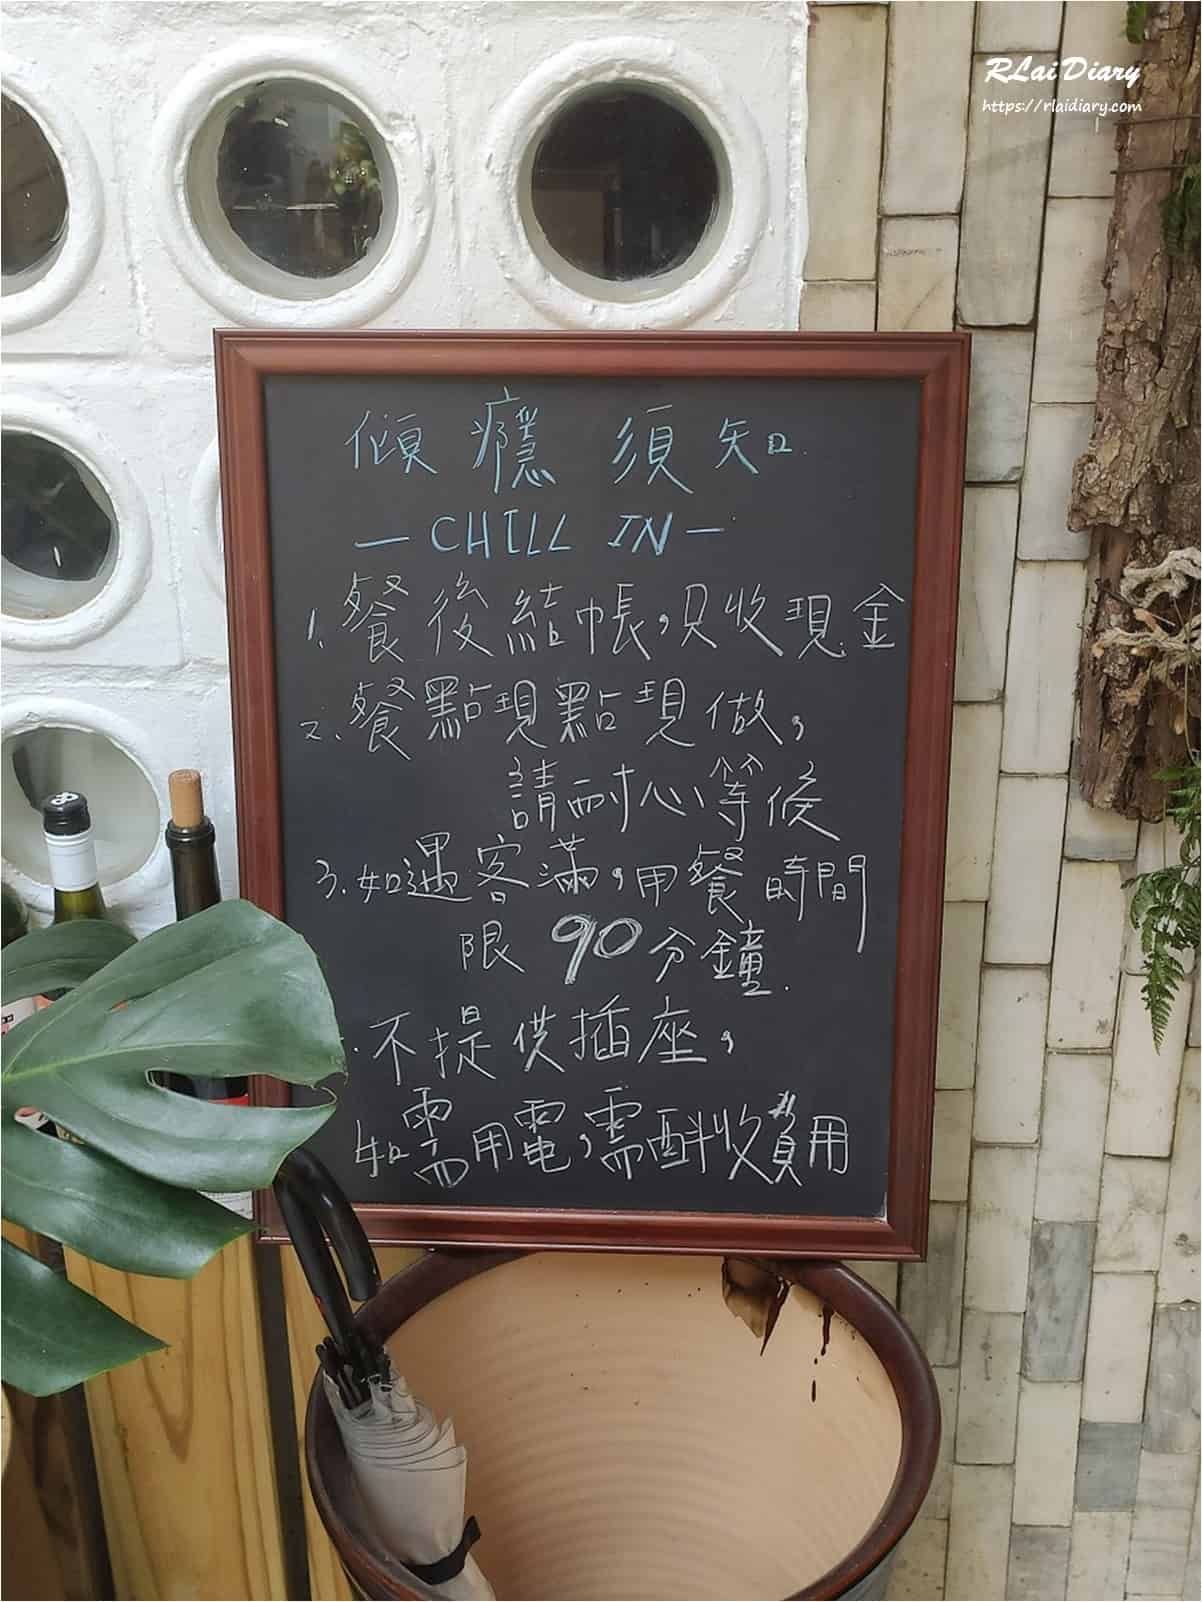 RLai Diary
https://rlaidiary.com
傾癮須知.
—CHILL IN—
1.餐後結帳,只收現金
2.餐點現點現做,
請耐心等候
3.如遇客滿,用餐時間
限90分鐘.
不提供插座,
如需用電,需酙收費用